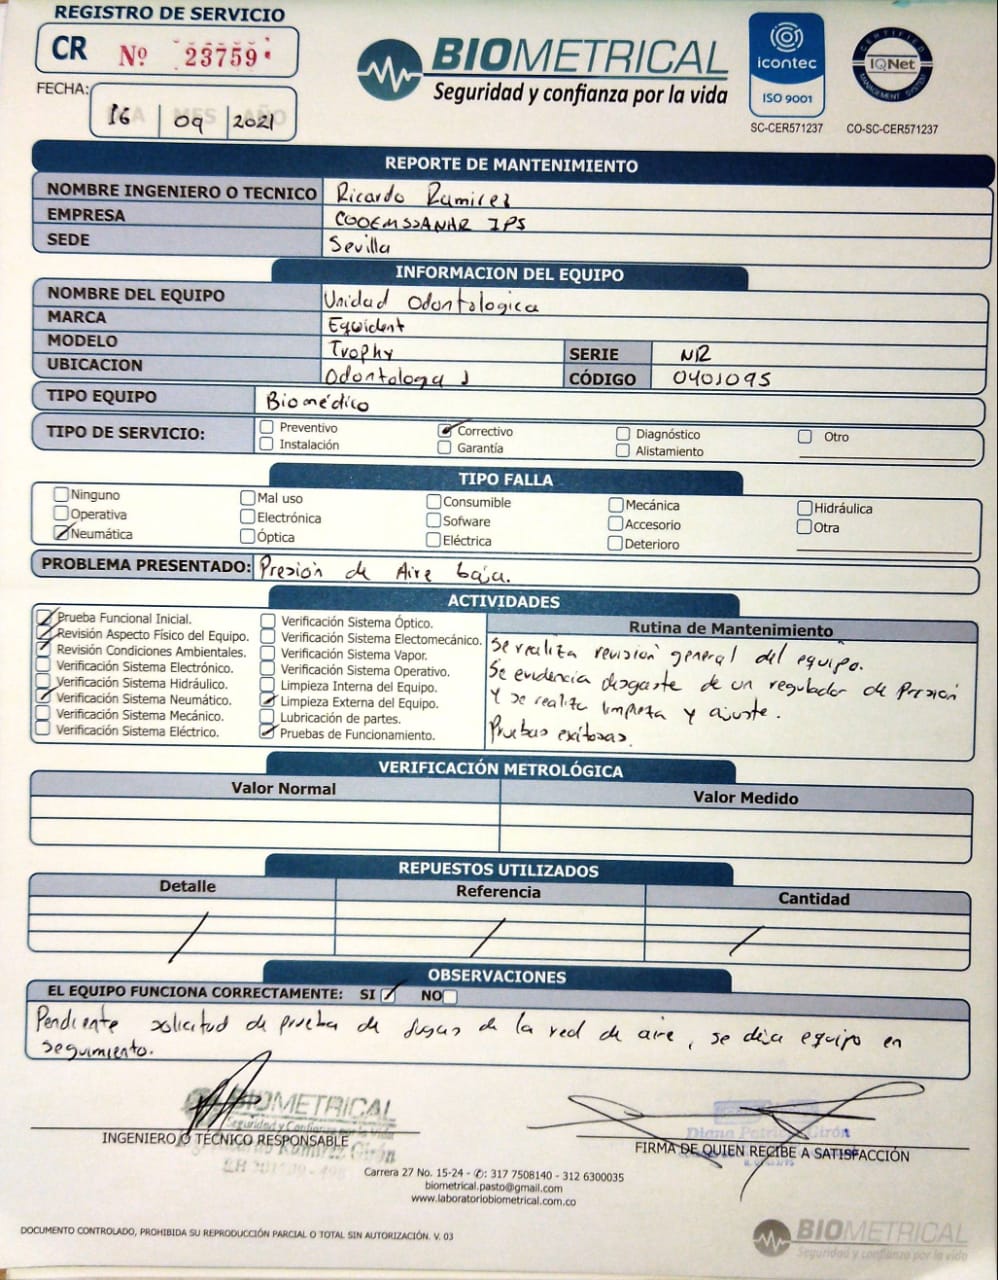 REGISTRO DE SERVICIO
CR Nº 23759
BIOMETRICAL
Seguridad y confianza por la vida
icontec
ISO 9001
SC-CER571237
CERTIFIED
IQNet
MANAGEMENT SYSTEM
CO-SC-CER571237
FECHA: DIA MES AÑO
16 09 2021
REPORTE DE MANTENIMIENTO
NOMBRE INGENIERO O TECNICO Ricardo Ramirez
EMPRESA COOEMSSANAR IPS
SEDE Sevilla
INFORMACION DEL EQUIPO
NOMBRE DEL EQUIPO Unidad Odontologica
MARCA Equident
MODELO Trophy SERIE NR
UBICACION Odontologa 1 CÓDIGO 0401095
TIPO EQUIPO Biomédico
TIPO DE SERVICIO:
Preventivo Correctivo Diagnóstico Otro
Instalación Garantía Alistamiento
TIPO FALLA
Ninguno Mal uso Consumible Mecánica Hidráulica
Operativa Electrónica Sofware Accesorio Otra
Neumática Óptica Eléctrica Deterioro
PROBLEMA PRESENTADO: Presión de Aire baja.
ACTIVIDADES
Prueba Funcional Inicial.
Revisión Aspecto Físico del Equipo.
Revisión Condiciones Ambientales.
Verificación Sistema Electrónico.
Verificación Sistema Hidráulico.
Verificación Sistema Neumático.
Verificación Sistema Mecánico.
Verificación Sistema Eléctrico.
Verificación Sistema Óptico.
Verificación Sistema Electomecánico.
Verificación Sistema Vapor.
Verificación Sistema Operativo.
Limpieza Interna del Equipo.
Limpieza Externa del Equipo.
Lubricación de partes.
Pruebas de Funcionamiento.
Rutina de Mantenimiento
Se realiza revisión general del equipo.
Se evidencia desgaste de un regulador de Presión
Y se realiza limpieza y ajuste.
Pruebas exitosas.
VERIFICACIÓN METROLÓGICA
Valor Normal Valor Medido
REPUESTOS UTILIZADOS
Detalle Referencia Cantidad
OBSERVACIONES
EL EQUIPO FUNCIONA CORRECTAMENTE: SI NO
Pendiente solicitud de prueba de fugas de la red de aire, se deja equipo en
seguimiento.
BIOMETRICAL
Seguridad y Confianza por la Vida
INGENIERO O TÉCNICO RESPONSABLE
Ricardo Ramirez Girón
Diana Patricia Girón
FIRMA DE QUIEN RECIBE A SATISFACCIÓN
Carrera 27 No. 15-24 - ✆: 317 7508140 - 312 6300035
biometrical.pasto@gmail.com
www.laboratoriobiometrical.com.co
DOCUMENTO CONTROLADO, PROHIBIDA SU REPRODUCCIÓN PARCIAL O TOTAL SIN AUTORIZACIÓN. V. 03
BIOMETRICAL
Seguridad y confianza por la vida